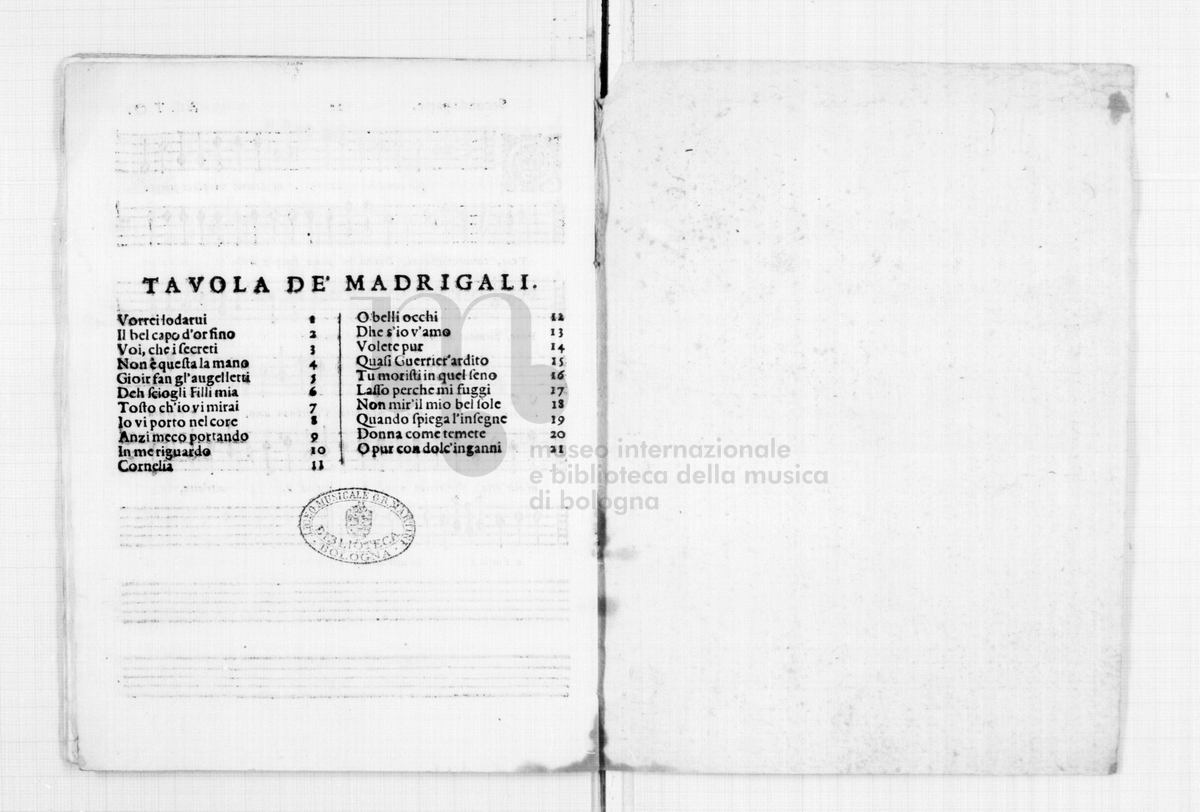 TAVOLA DE' MADRIGALI.
Vorrei lodarui 1
Il bel capo d'or fino 2
Voi, che i secreti 3
Non è questa la mano 4
Gioir fan gl'augelletti 5
Deh sciogli Filli mia 6
Tosto ch'io vi mirai 7
Io vi porto nel core 8
Anzi meco portando 9
In me riguardo 10
Cornelia 11
O belli occhi 12
Dhe s'io v'amo 13
Volete pur 14
Quasi Guerrier'ardito 15
Tu moristi in quel seno 16
Lasso perche mi fuggi 17
Non mir'il mio bel sole 18
Quando spiega l'insegne 19
Donna come temete 20
O pur con dolc'inganni 21
museo internazionale
e biblioteca della musica
di bologna
LICEO MUSICALE G.B. MARTINI
BIBLIOTECA
BOLOGNA